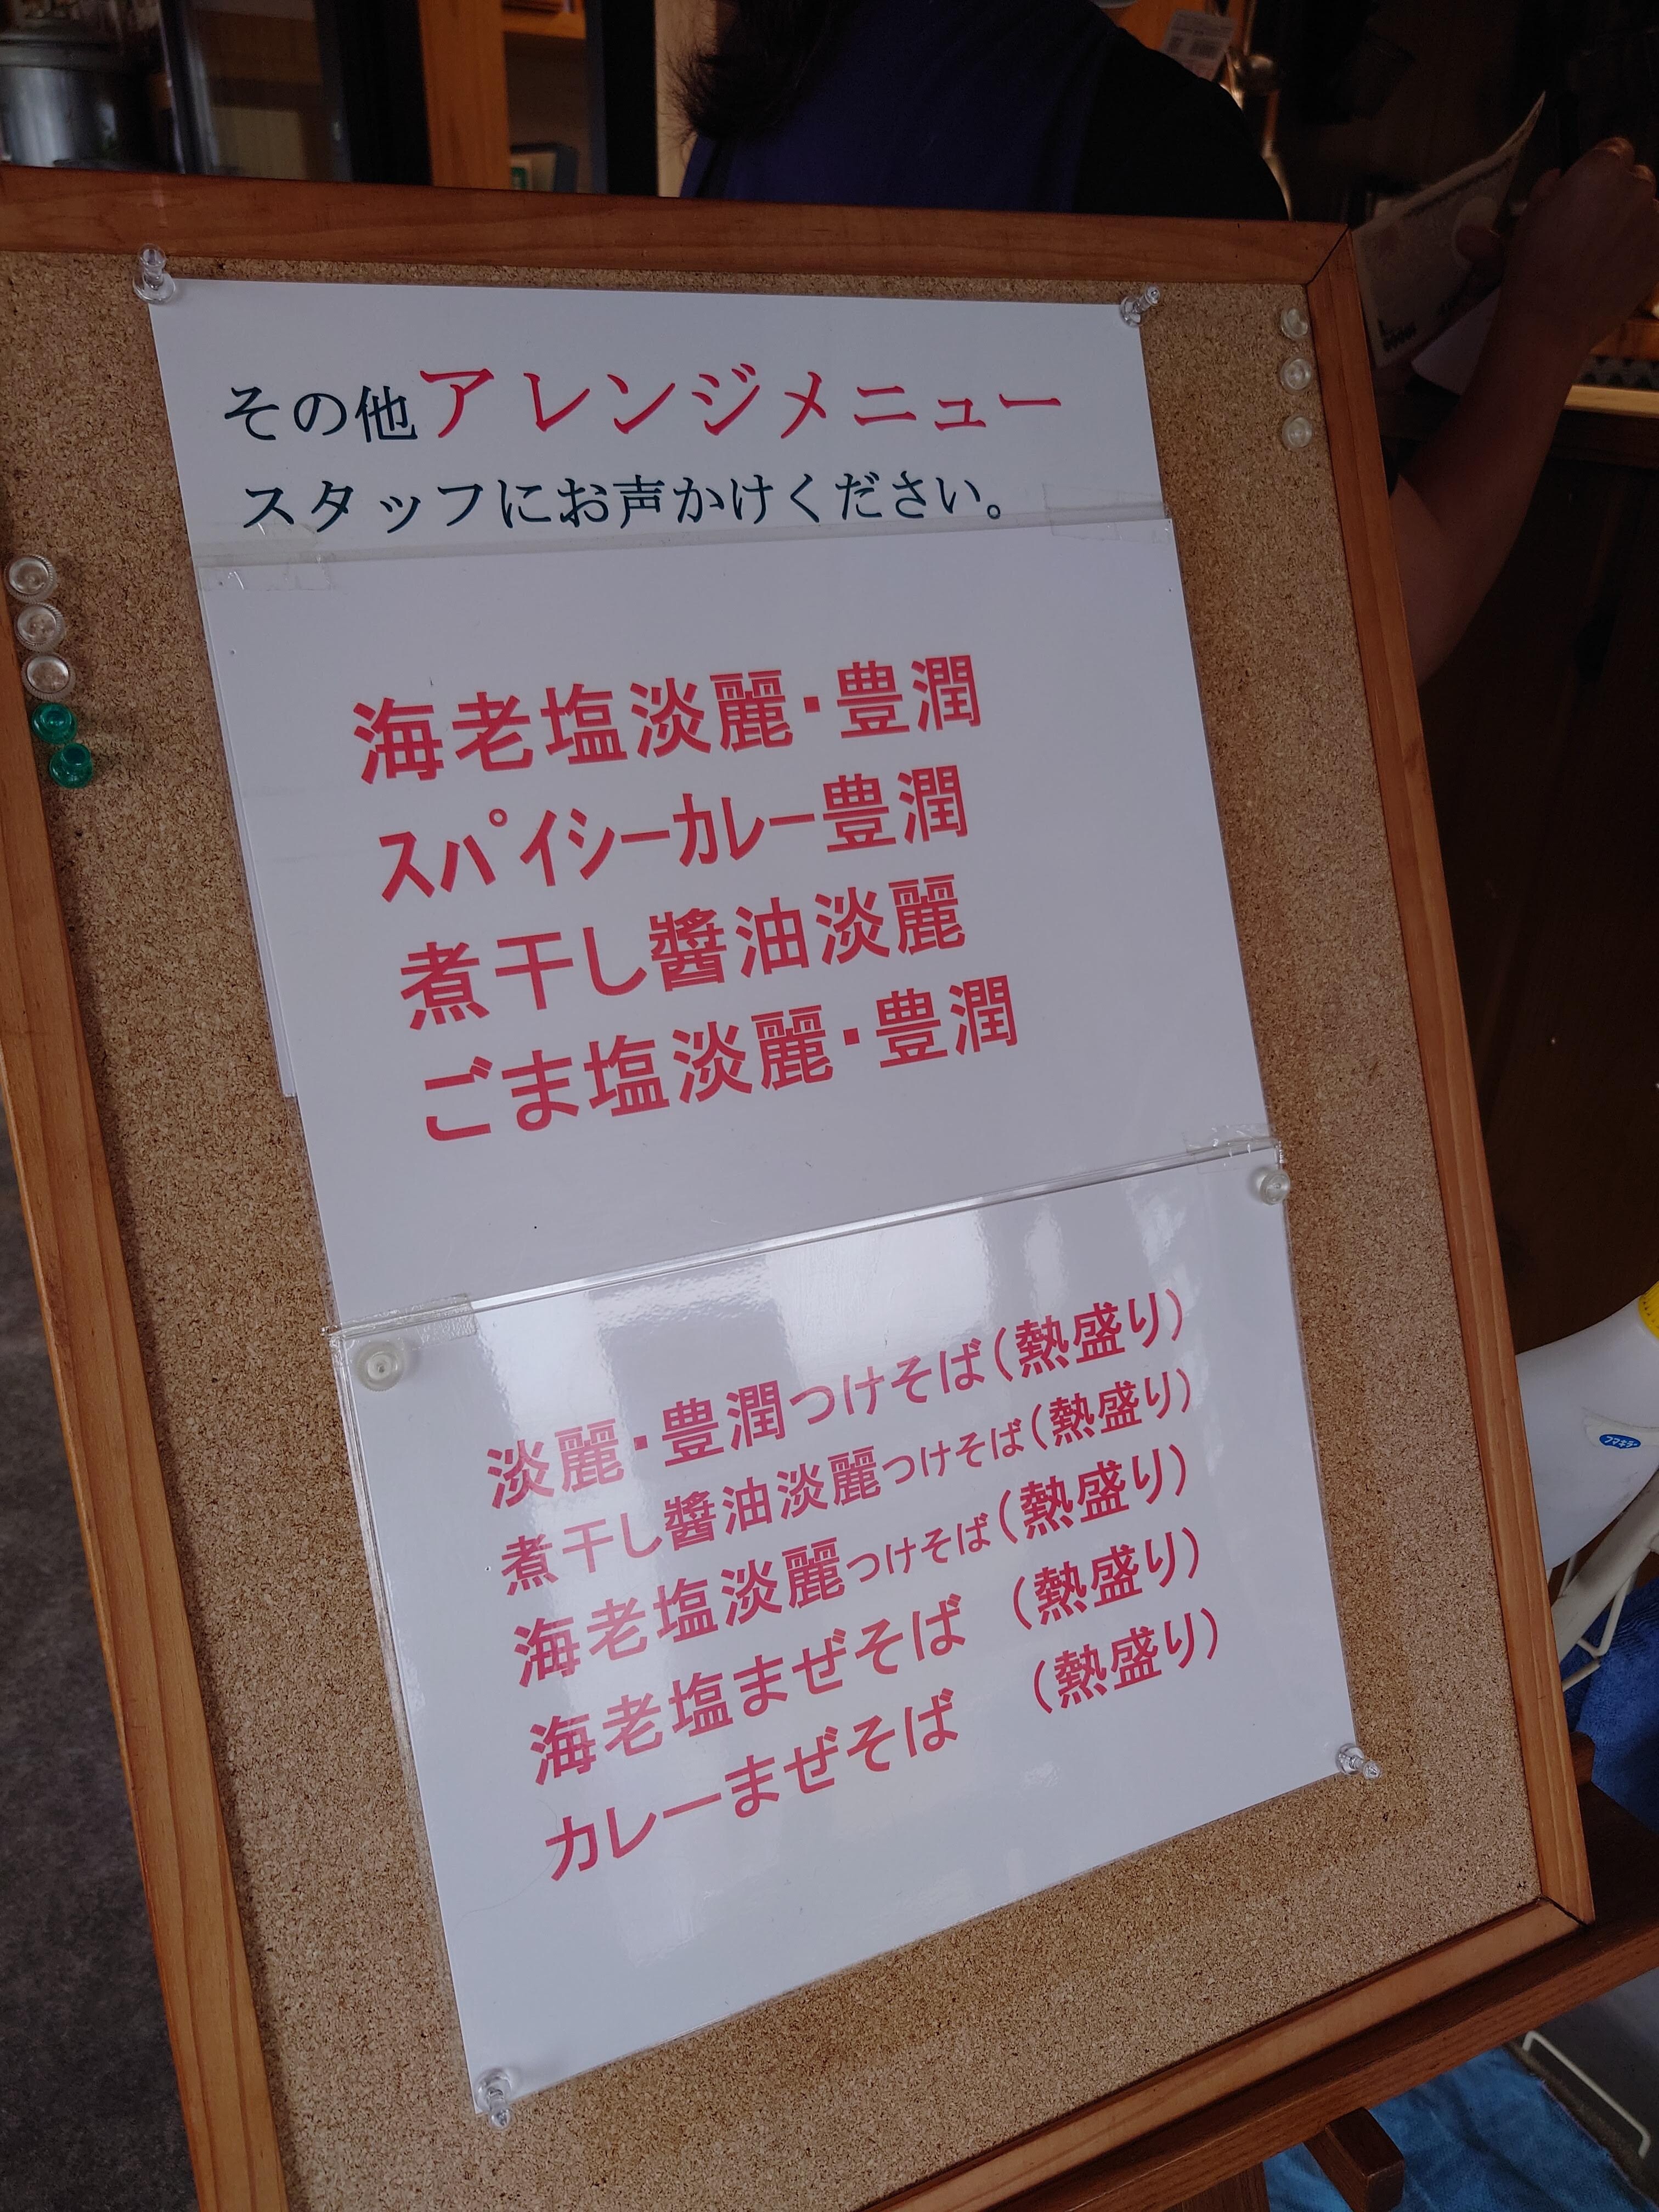 その他アレンジメニュー
スタッフにお声かけください。
海老塩淡麗・豊潤
スパイシーカレー豊潤
煮干し醬油淡麗
ごま塩淡麗・豊潤
淡麗・豊潤つけそば(熱盛り)
煮干し醬油淡麗つけそば(熱盛り)
海老塩淡麗つけそば(熱盛り)
海老塩まぜそば (熱盛り)
カレーまぜそば (熱盛り)
フマキラー